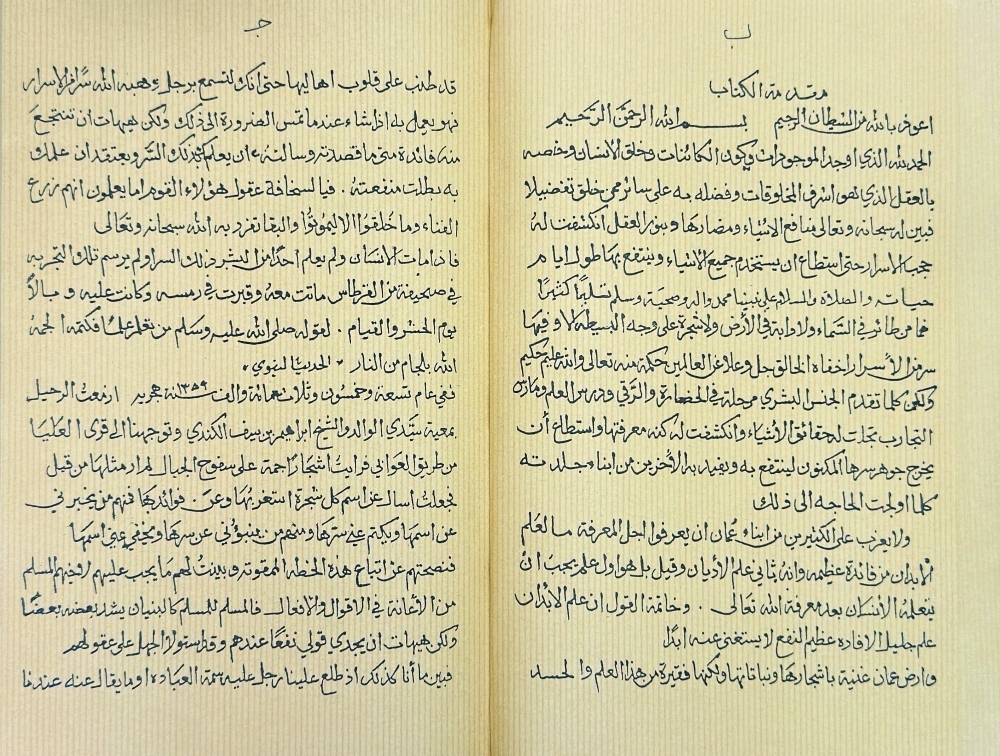 ب
مقدمة الكتاب
اعوذ بالله من الشيطان الرجيم بسم الله الرحمن الرحيم
الحمد لله الذي اوجد الموجودات وكون الكائنات وخلق الانسان وخصه
بالعقل الذي هو اشرف المخلوقات وفضله به على سائر من خلق تفضيلا
فبين له سبحانه وتعالى منافع الاشياء ومضارها وبنور العقل انكشفت له
حجب الاسرار حتى استطاع ان يستخدم جميع الاشياء وينتفع بها طول ايام
حياته والصلاة والسلام على نبينا محمد واله وصحبه وسلم تسليما كثيرا
فما من طائر في السماء ولا دابة في الأرض ولا شجرة على وجه البسيطه الا وفيها
سر من الأسرار اخفاه الخالق جل وعلا عن العالمين حكمة منه تعالى والله عليم حكيم
ولكن كلما تقدم الجنس البشري مرحلة في الحضارة والرقي ودرس العلم ومارس
التجارب تجلت له حقائق الأشياء وانكشفت له كنه معرفتها واستطاع أن
يخرج جوهر سرها المكنون لينتفع به ويفيد به الآخرين من ابناء جلدته
كلما اولجت الحاجه الى ذلك
ولا يعزب على الكثيرين من ابناء عُمان ان يعرفوا اجل المعرفة ما لعلم
الأبدان من فائدة عظيمه وانه ثاني علم الأديان وقيل بل هو اول علم يجب ان
يتعلمه الأنسان بعد معرفة الله تعالى . وخاتمة القول ان علم الابدان
علم جليل الافاده عظيم النفع لا يستغنى عنه ابدا
وارض عمان غنية باشجارها ونباتاتها ولكنها فقيرة من هذا العلم والحسد
جـ
قد طبت على قلوب اهاليها حتى انك لتسمع برجل وهبه الله سرا من الاسرار
فهو يعمل به اذا شاء عندما تمس الضرورة الى ذلك ولكن هيهات ان تنتجع
منه فائدة متى ما قصدته وسالته ان يعلمك ذلك السر ويعتقد ان علمك
به بطلت منفعته . فيا لسخافة عقول هؤلاء القوم اما يعلمون انهم زرع
الفناء وما خلقوا الا ليموتوا والبقا تفرد به الله سبحانه وتعالى
فاذا مات الانسان ولم يعلم احدا من البشر بذلك السر او لم يرسم تلك التجربه
في صحيفة من القرطاس ماتت معه وقبرت في رمسه وكانت عليه وبالاً
يوم الحشر والقيام . لقوله صلى الله عليه وسلم من تعلم علما فكتمه الجمه
الله بلجام من النار " الحديث النبوي "
ففي عام تسعة وخمسون وثلاثمائة والف سنة ١٣٥٩ هجريه ازمعتُ الرحيل
بمعية سيدي الوالد والشيخ ابراهيم بن سيف الكندي وتوجهنا الى قرى العليا
من طريق العوابي فرايت اشجارا جمة على سفوح الجبال لم ار مثلها من قبل
فجعلت اسال عن اسم كل شجرة استغربها وعن . فوائدها فمنهم من يخبرني
عن اسمها ويكتم عني سرها ومنهم من ينبؤني عن سرها ويخفي عني اسمها
فنصحتهم عن اتباع هذه الخطه الممقوته وبينت لهم ما يجب عليهم لاخيهم المسلم
من الأعانة في الاقوال والافعال فالمسلم للمسلم كالبنيان يشد بعضه بعضا
ولكن هيهات ان يجدي قولي نفعا عندهم وقد استولا الجهل على عقولهم
فبينما أنا كذلك اذ طلع علينا رجل عليه سمة العباده او ما يقال عنه عندنا